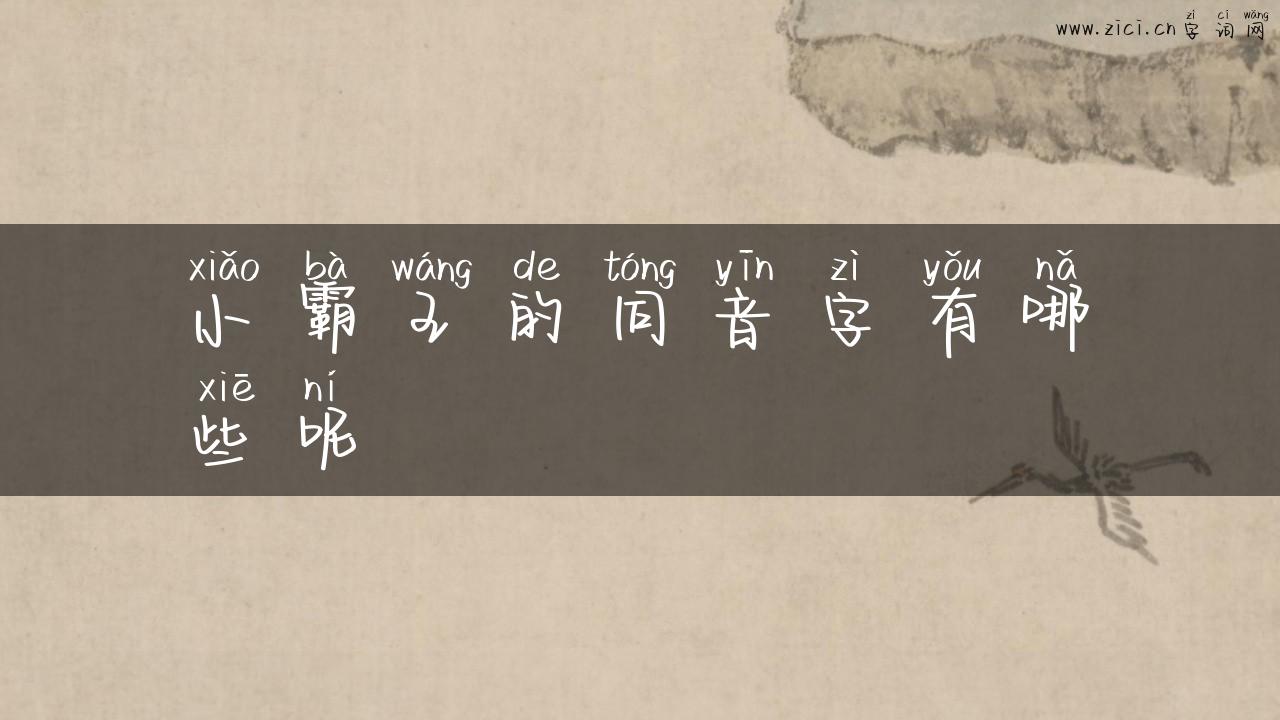 zì cí wǎng
www.zici.cn字词网
xiǎo bà wáng de tóng yīn zì yǒu nǎ
小霸王的同音字有哪
xiē ní
些呢